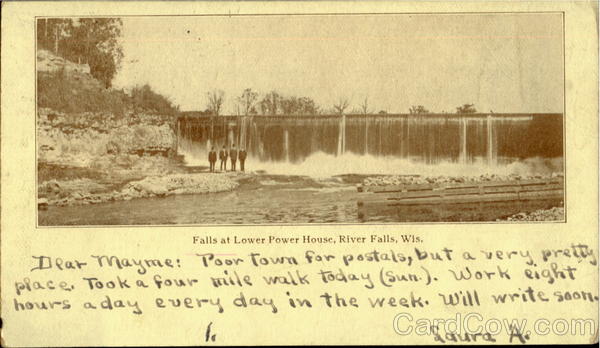 Falls at Lower Power House, River Falls, Wis.
Dear Mayme: Poor town for postals, but a very pretty
place. Took a four mile walk today (Sun.). Work eight
hours a day every day in the week. Will write soon.
1. Laura A.
CardCow.com